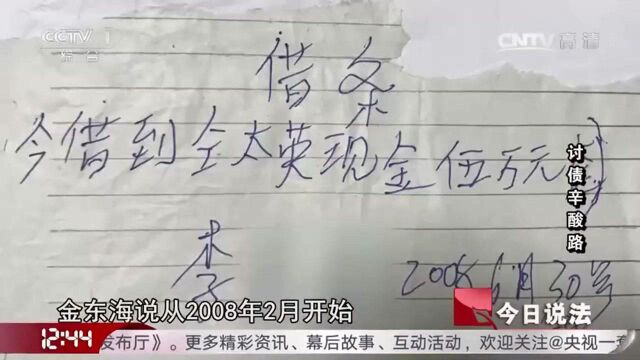 CCTV 1
综合
CNTV 高清
借条
今借到全太英现金伍万元
李
2008 6月30号
讨债辛酸路
金东海说从2008年2月开始
今日说法
12:44
发布厅》。更多精彩资讯、幕后故事、互动活动,欢迎关注@央视一套